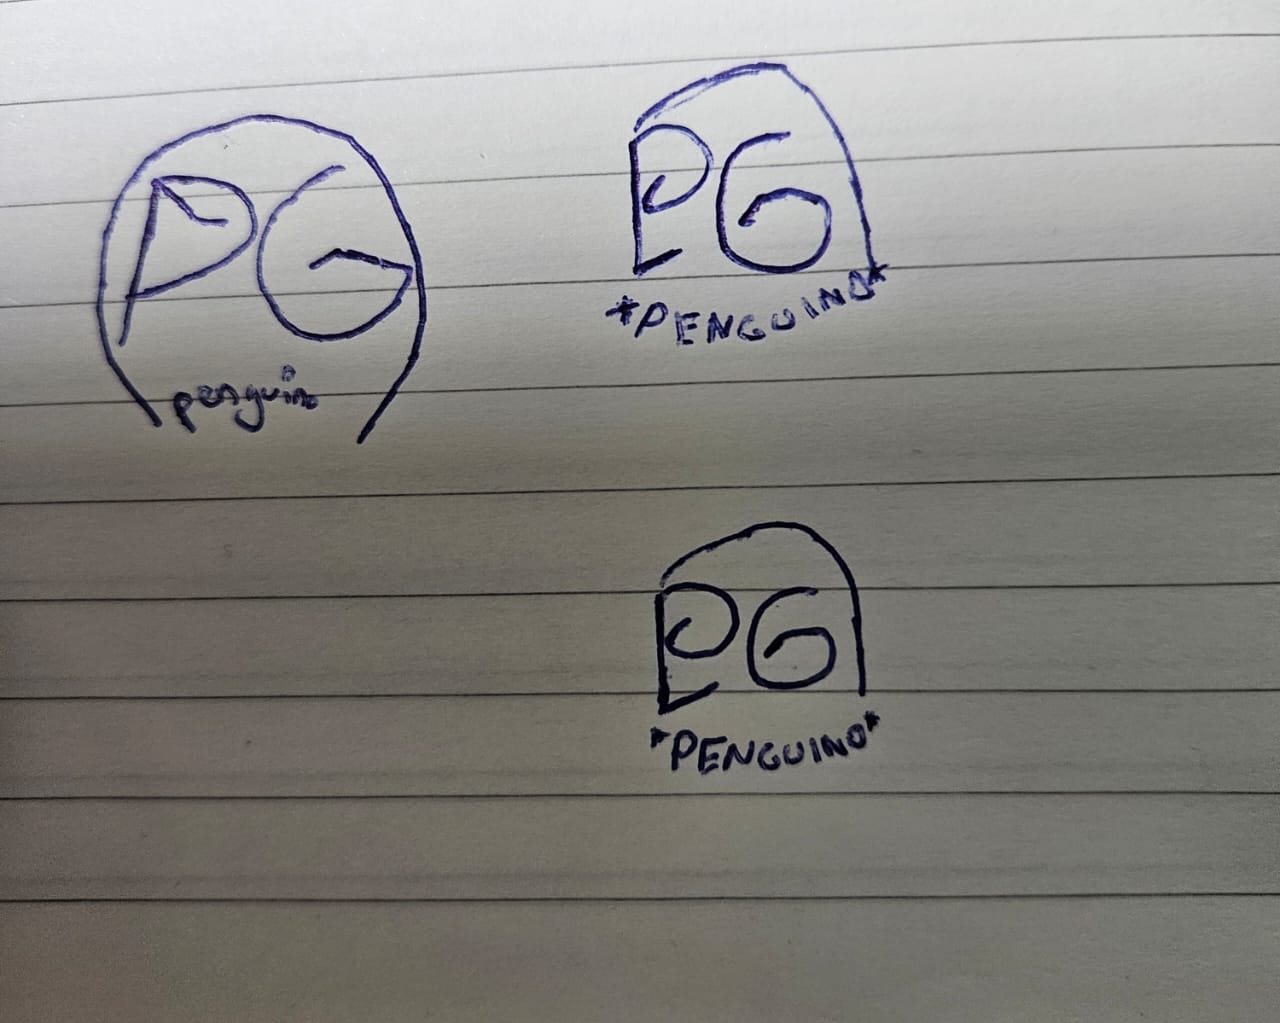 PG
penguino
PG
*PENGUINO*
PG
*PENGUINO*